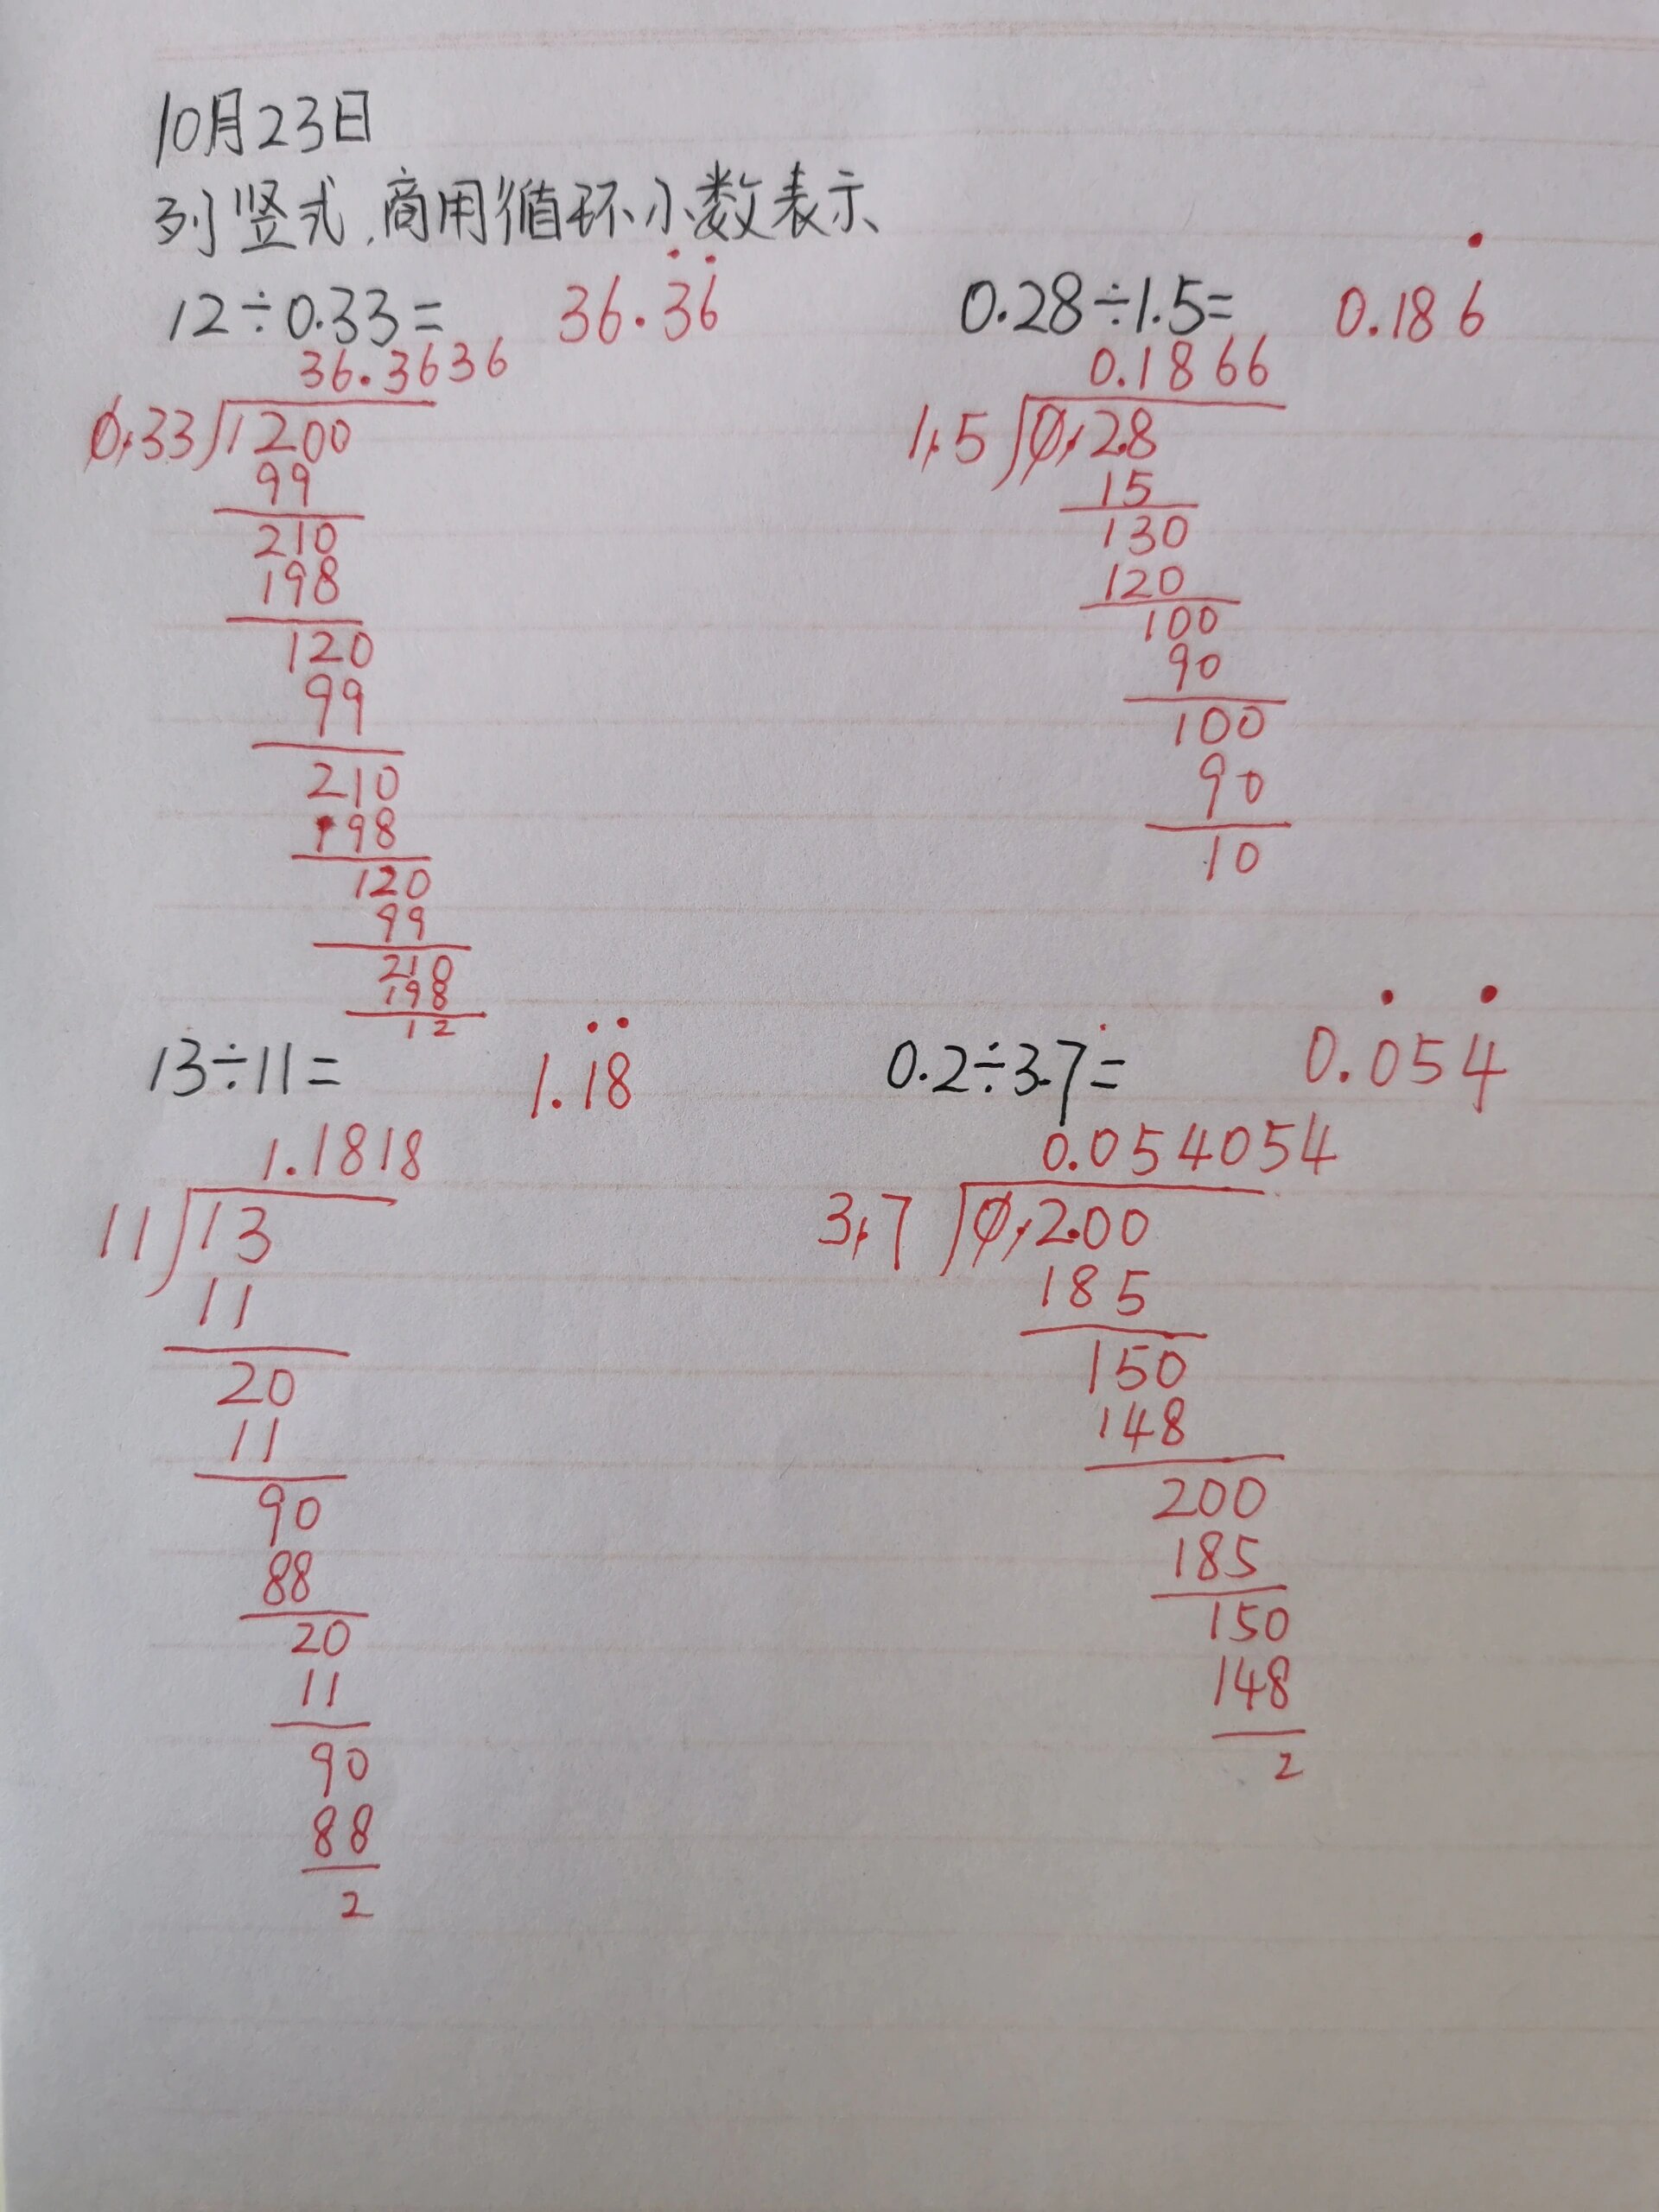 10月23日
列竖式,商用循环小数表示
12÷0.33= 36.3̇6̇
36.3636
0.33 1200
99
210
198
120
99
210
198
120
99
210
198
12
0.28÷1.5= 0.186̇
0.1866
1.5 0.2.8
15
130
120
100
90
100
90
10
13÷11= 1.1̇8̇
1.1818
11 13
11
20
11
90
88
20
11
90
88
2
0.2÷3.7= 0.0̇54̇
0.054054
3.7 0.2.00
185
150
148
200
185
150
148
2